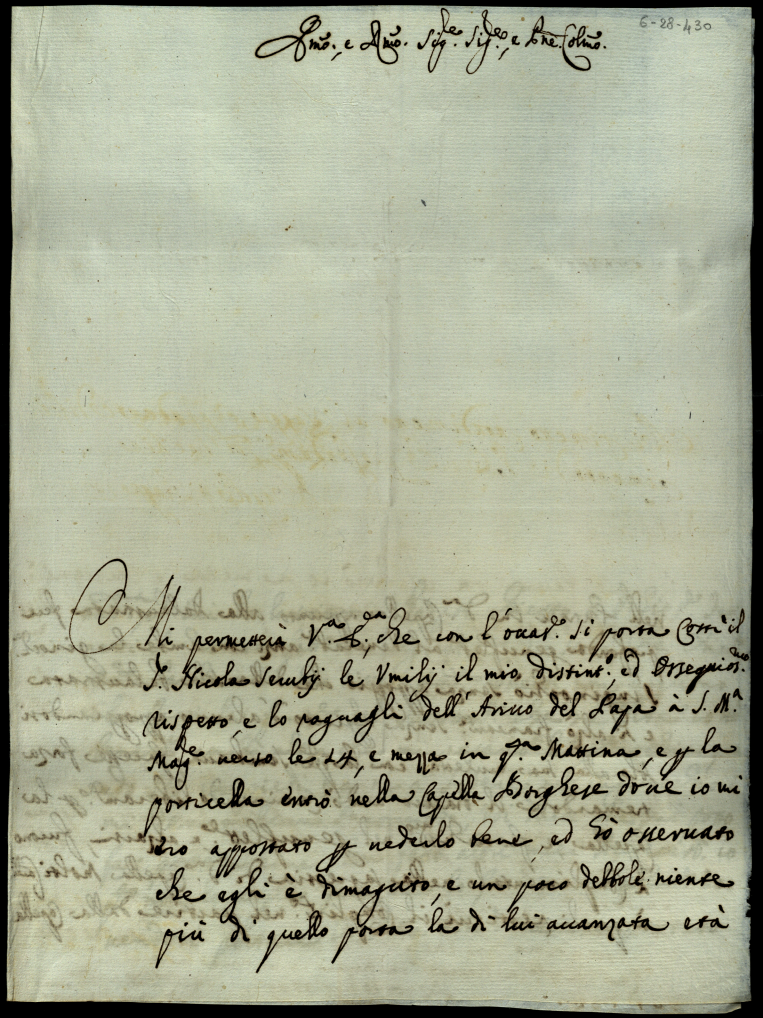 6-28-430
Rmo, e Rmo. Sigre. Sigre, e Pne. Colmo.
Mi permetterà Va. P., che con l'ouade. si porta Costì il
Sr. Nicola le Umilij il mio distinto, ed Ossequiosmo.
rispetto, e lo raguagli dell'Ariuo del Papa à S. Ma.
Magre. uerso le 14, e mezza in qta. Mattina, e p la
porticella entrò nella Capella Borghese doue io mi
ero appostato p uederlo bene, ed hò osseruato
che egli è dimagrito, e un poco debbole niente
più di quello porta la di lui auanzata età